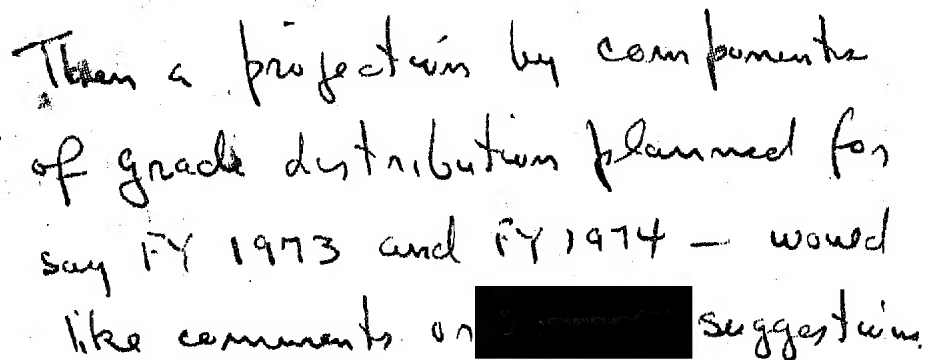 Then a projection by components
of grade distribution planned for
say FY 1973 and FY 1974 — would
like comments on suggestions.